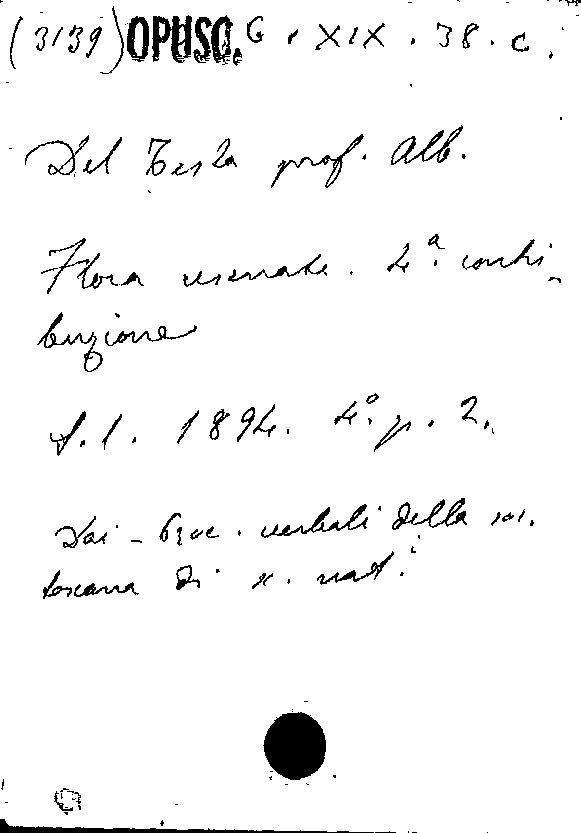 (3139) OPUSC. G. XIX. 38. c.
Del Testa prof. Alb.
Flora cesenate. 2ª. contri-
buzione
S. l. 1894. 4º. p. 2.
Dai - Proc. verbali della soc.
toscana di s. nat.i